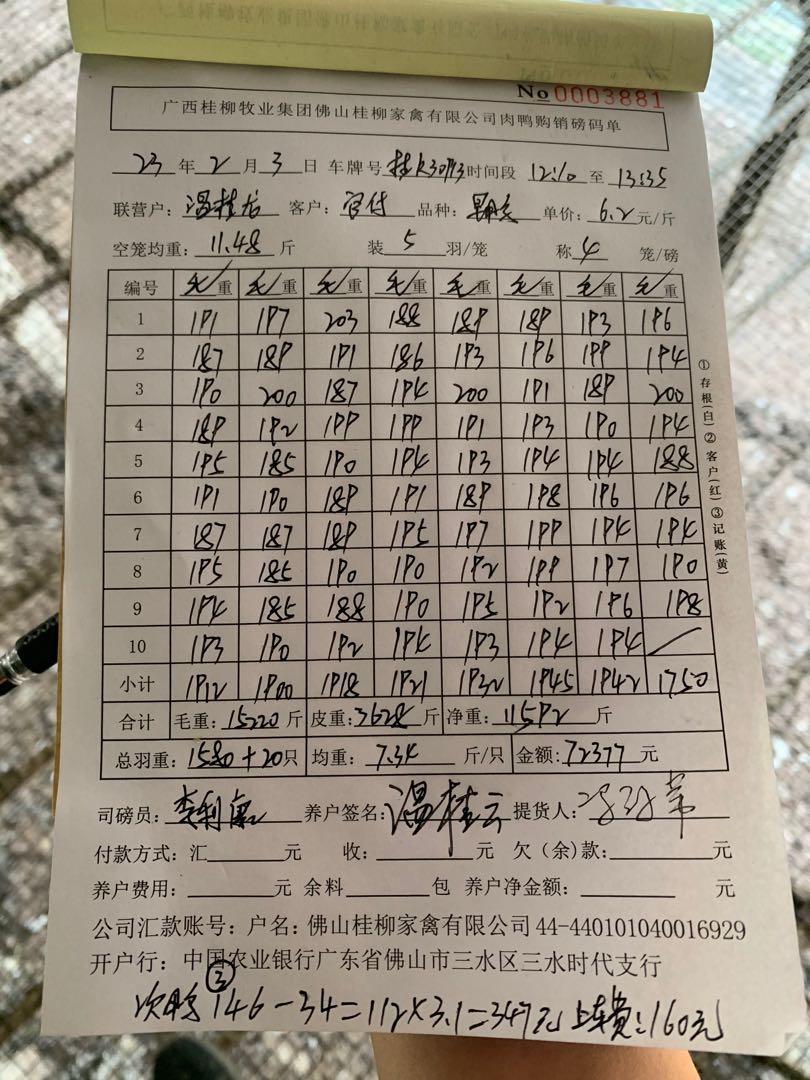 No 0003881
广西桂柳牧业集团佛山桂柳家禽有限公司肉鸭购销磅码单
23 年 2 月 3 日 车牌号 时间段 12:10 至 13:35
联营户: 客户: 品种: 单价: 6.2 元/斤
空笼均重: 11.48 斤 装 5 羽/笼 称 4 笼/磅
编号 毛重 毛重 毛重 毛重 毛重 毛重 毛重 毛重
1 191 197 203 188 189 189 193 196
2 187 189 191 186 193 196 199 194
3 190 200 187 194 200 191 189 200
4 189 192 199 199 191 193 190 194
5 195 185 190 194 193 194 194 188
6 191 190 189 191 189 198 196 196
7 187 187 189 195 197 199 194 194
8 195 185 190 190 192 199 197 190
9 194 185 188 190 195 192 196 198
10 193 190 192 194 193 194 194 /
小计 1912 1900 1918 1921 1932 1945 1942 1750
合计 毛重: 15220 斤 皮重: 3628 斤 净重: 11592 斤
总羽重: 1580+20 只 均重: 7.34 斤/只 金额: 72377 元
①存根(白)②客户(红)③记账(黄)
司磅员: 养户签名: 温桂云 提货人:
付款方式: 汇 元 收: 元 欠(余)款: 元
养户费用: 元 余料 包 养户净金额: 元
公司汇款账号: 户名: 佛山桂柳家禽有限公司 44-440101040016929
开户行: 中国农业银行广东省佛山市三水区三水时代支行
③
次鸭 146-34=112×3.1=347元 上车费:160元